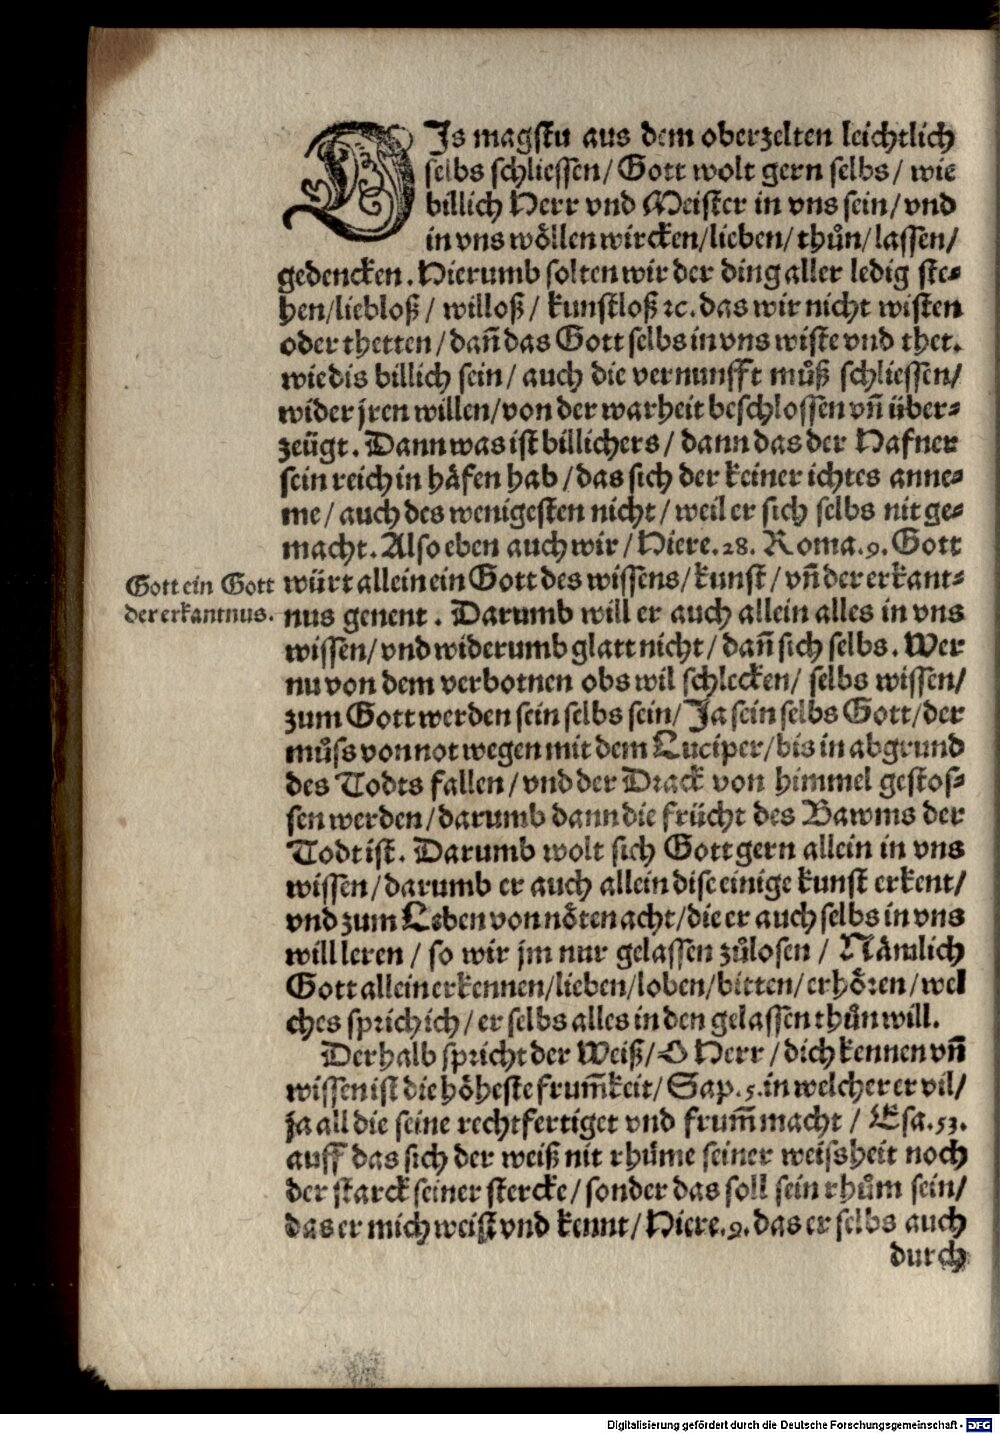 DIs magstu aus dem oberzelten leichtlich
selbs schliessen/ Gott wolt gern selbs/ wie
billich Herr vnd Meister in vns sein/ vnd
in vns wöllen wircken/ lieben/ thůn/ lassen/
gedencken. Hierumb solten wir der ding aller ledig ste-
hen/ liebloß/ willoß/ kunstloß ꝛc. das wir nicht wisten
oder thetten/ dañ das Gott selbs in vns wiste vnd thet.
wie dis billich sein/ auch die vernunfft můß schliessen/
wider jren willen/ von der warheit beschlossen vñ über-
zeügt. Dann was ist billichers/ dann das der Hafner
sein reich in häfen hab/ das sich der keiner ichtes anne-
me/ auch des wenigesten nicht/ weil er sich selbs nit ge-
macht. Also eben auch wir/ Hiere. 28. Roma. 9. Gott
Gott ein Gott
der erkantnus.
würt allein ein Gott des wissens/ kunst/ vñ der erkant-
nus genent. Darumb will er auch allein alles in vns
wissen/ vnd widerumb glatt nicht/ dañ sich selbs. Wer
nu von dem verbotnen obs wil schlecken/ selbs wissen/
zum Gott werden sein selbs sein/ Ja sein selbs Gott/ der
můss von not wegen mit dem Luciper/ bis in abgrund
des Todts fallen/ vnd der Drack von himmel gestos-
sen werden/ darumb dann die frücht des Bawms der
Todt ist. Darumb wolt sich Gott gern allein in vns
wissen/ darumb er auch allein dise einige kunst erkent/
vnd zum Leben von nöten acht/ die er auch selbs in vns
will leren/ so wir jm nur gelassen zůlosen/ Nämlich
Gott allein erkennen/ lieben/ loben/ bitten/ erhören/ wel
ches sprich ich/ er selbs alles in den gelassen thůn will.
Derhalb spricht der Weiß/ O Herr/ dich kennen vñ
wissen ist die höheste frum̃keit/ Sap. 5. in welcher er vil/
ja all die seine rechtfertiget vnd frum̃ macht/ Esa. 53.
auff das sich der weiß nit rhůme seiner weissheit noch
der starck seiner stercke/ sonder das soll sein rhům sein/
das er mich weist vnd kennt/ Hiere. 9. das er selbs auch
durch
Digitalisierung gefördert durch die Deutsche Forschungsgemeinschaft - DFG